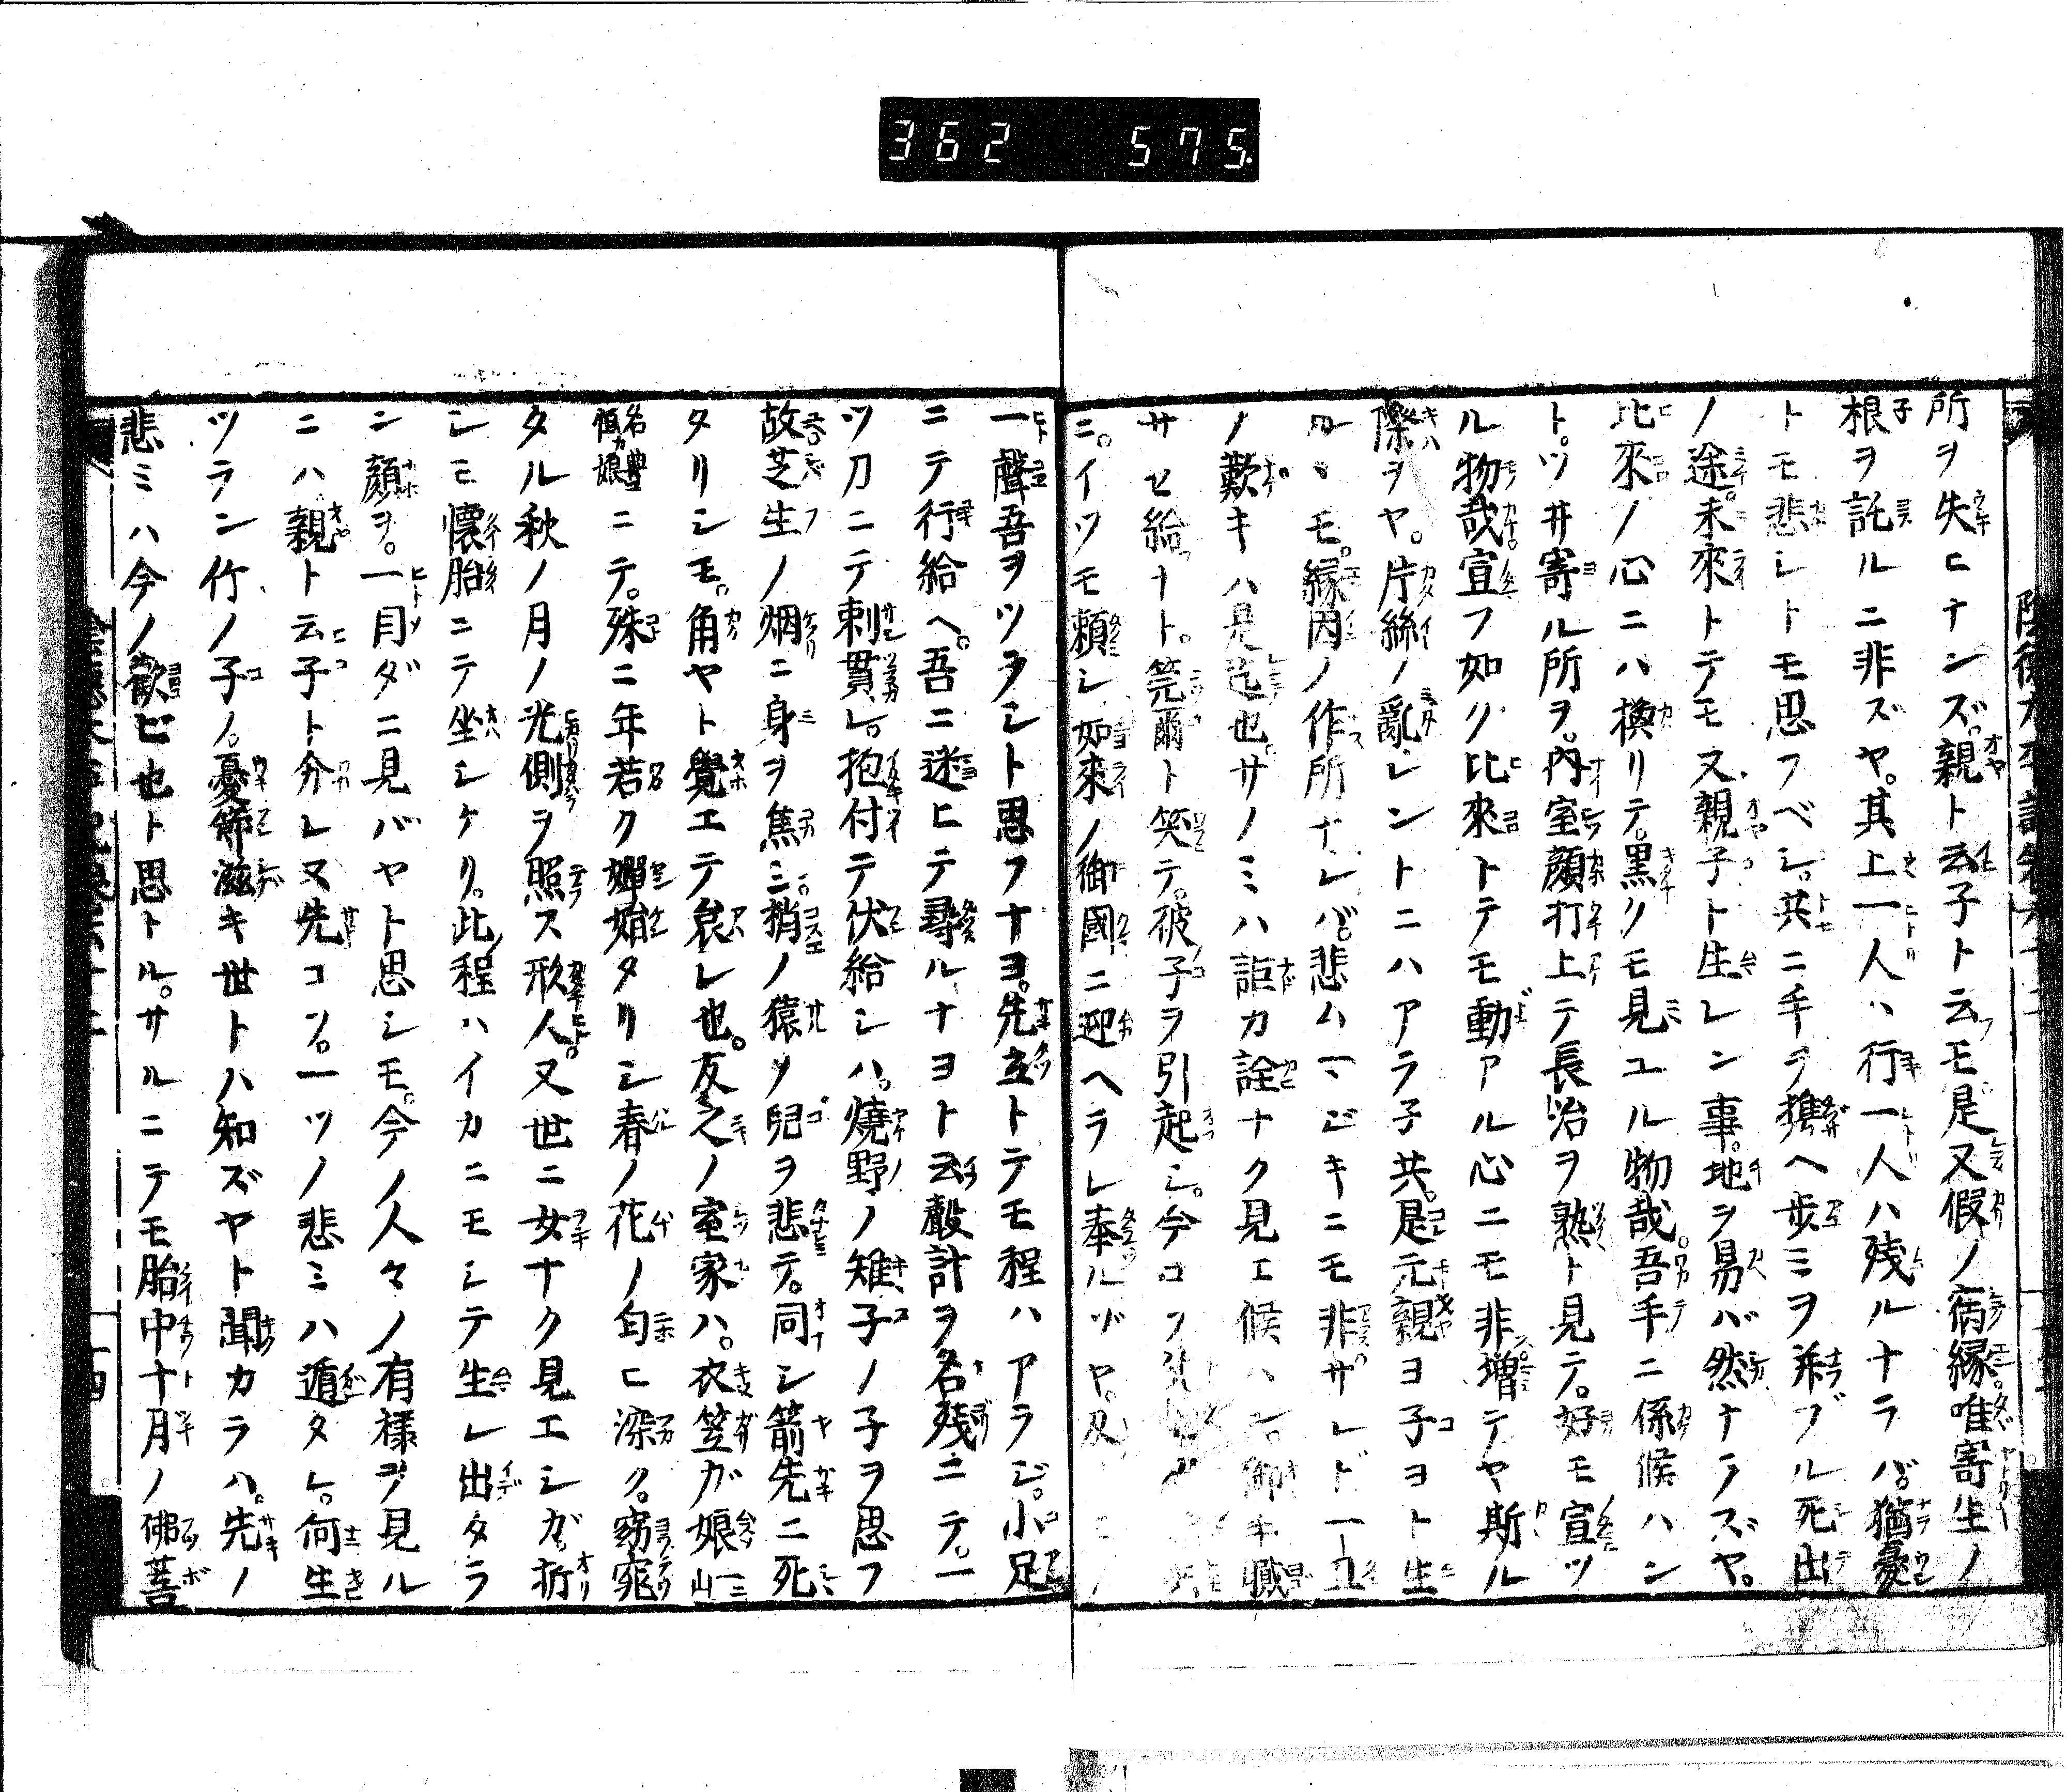 362 575.
所ヲ失ヒナンズ。親ト云子ト云モ是又假ノ病縁。唯寄生ノ
根ヲ託ルニ非ズヤ。其上一人ハ行一人ハ残ルナラバ。猶憂
トモ悲シトモ思フベシ。共ニ手ヲ携ヘ歩ミヲ并ブル死出
ノ途。未來トテモ又親子ト生レン事。地ヲ易バ然ナラズヤ。
比來ノ心ニハ換リテ。黒クモ見ユル物哉。吾手ニ係候ハン
ト。ツ井寄ル所ヲ。内室顔打上テ長治ヲ熟ト見テ。好モ宣ツ
ル物哉。宣フ如ク比來トテモ動アル心ニモ非。増テヤ斯ル
際ヲヤ。片絲ノ亂レントニハアラ子共。是元親ヨ子ヨト生
ルヽモ。縁因ノ作所ナレバ。悲ムベキニモ非ザレド
ノ歎キハ是也。サノミハ詎カ詮ナク見エ候ハン。
サセ給ナト。莞爾ト笑テ。彼子ヲ引起シ。今コソ
ニ。イツモ頼シ如來ノ御國ニ迎ヘラレ奉ルヅヤ。
一聲吾ヲツラシト思フナヨ。先立トテモ程ハアラジ。小足
ニテ行給ヘ。吾ニ迷ヒテ尋ルナヨト云聲計ヲ名残ニテ。一
ツ刀ニテ刺貫レ。抱付テ伏給シハ。燒野ノ雉子ノ子ヲ思フ
故芝生ノ烟ニ身ヲ焦シ。梢ノ猿ノ兒ヲ悲テ。同シ箭先ニ死
タリシモ。角ヤト覺エテ哀レ也。友之ノ室家ハ。衣笠ガ娘山
名豊恒カ娘ニテ。殊ニ年若ク嬋娟タリシ春ノ花ノ匂ヒ深ク。窈窕
タル秋ノ月ノ光側ヲ照ス形人。又世ニ女ナク見エシガ。折
シモ懷胎ニテ坐シケリ。此程ハイカニモシテ生レ出タラ
ン顔ヲ。一目ダニ見バヤト思シモ。今ノ人々ノ有様ヲ見ル
ニハ親ト云子ト分レ又先コソ。一ツノ悲ミハ遁タレ。何生
ツラン竹ノ子ノ。憂節滋キ世トハ知ズヤト聞カラハ。先ノ
悲ミハ今ノ歡ビ也ト思トル。サルニテモ胎中十月ノ佛菩